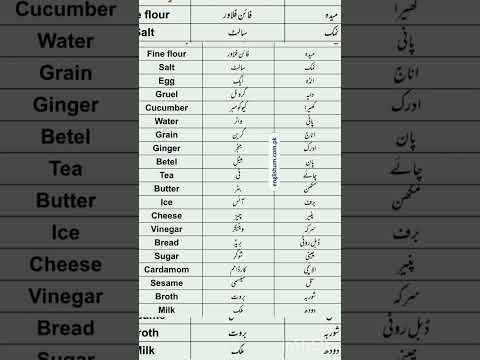 e flour فائن فلاور میدہ
Salt سالٹ نمک
Fine flour فائن فلاور میدہ
Salt سالٹ نمک
Egg ایگ انڈہ
Gruel گروئل دلیہ
Cucumber کیوکومبر کھیرا
Water واٹر پانی
Grain گرین اناج
Ginger جنجر ادرک
Betel بیٹل پان
Tea ٹی چائے
Butter بٹر مکھن
Ice آئس برف
Cheese چیز پنیر
Vinegar وینیگر سرکہ
Bread بریڈ ڈبل روٹی
Sugar شوگر چینی
Cardamom کارڈامم الائچی
Sesame سیسمی تل
Broth بروتھ شوربہ
Milk ملک دودھ
englishum.com.pk
roth بروتھ شوربہ
Milk ملک دودھ
Cucumber کھیرا
Water پانی
Grain اناج
Ginger ادرک
Betel پان
Tea چائے
Butter مکھن
Ice برف
Cheese پنیر
Vinegar سرکہ
Bread ڈبل روٹی